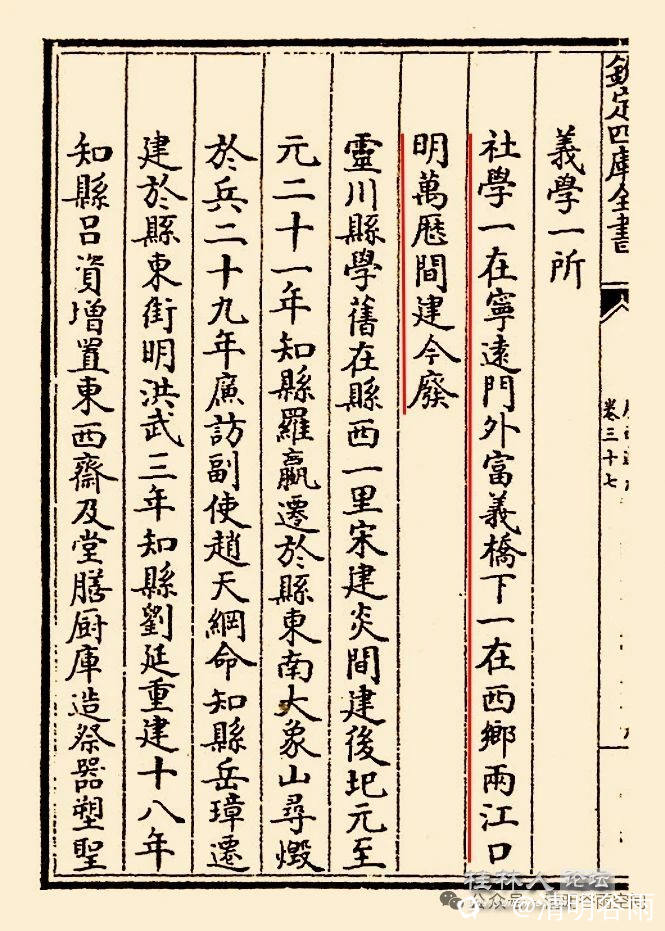 欽定四庫全書
卷三十七
義學一所
社學一在寧遠門外富義橋下一在西鄉兩江口
明萬厯間建今廢
靈川縣學舊在縣西一里宋建炎間建後圯元至
元二十一年知縣羅贏遷於縣東南大象山尋燬
於兵二十九年廣訪副使趙天綱命知縣岳璋遷
建於縣東街明洪武三年知縣劉延重建十八年
知縣呂資增置東西齋及堂膳厨庫造祭器塑聖
桂林人论坛
公众号
@清明谷雨